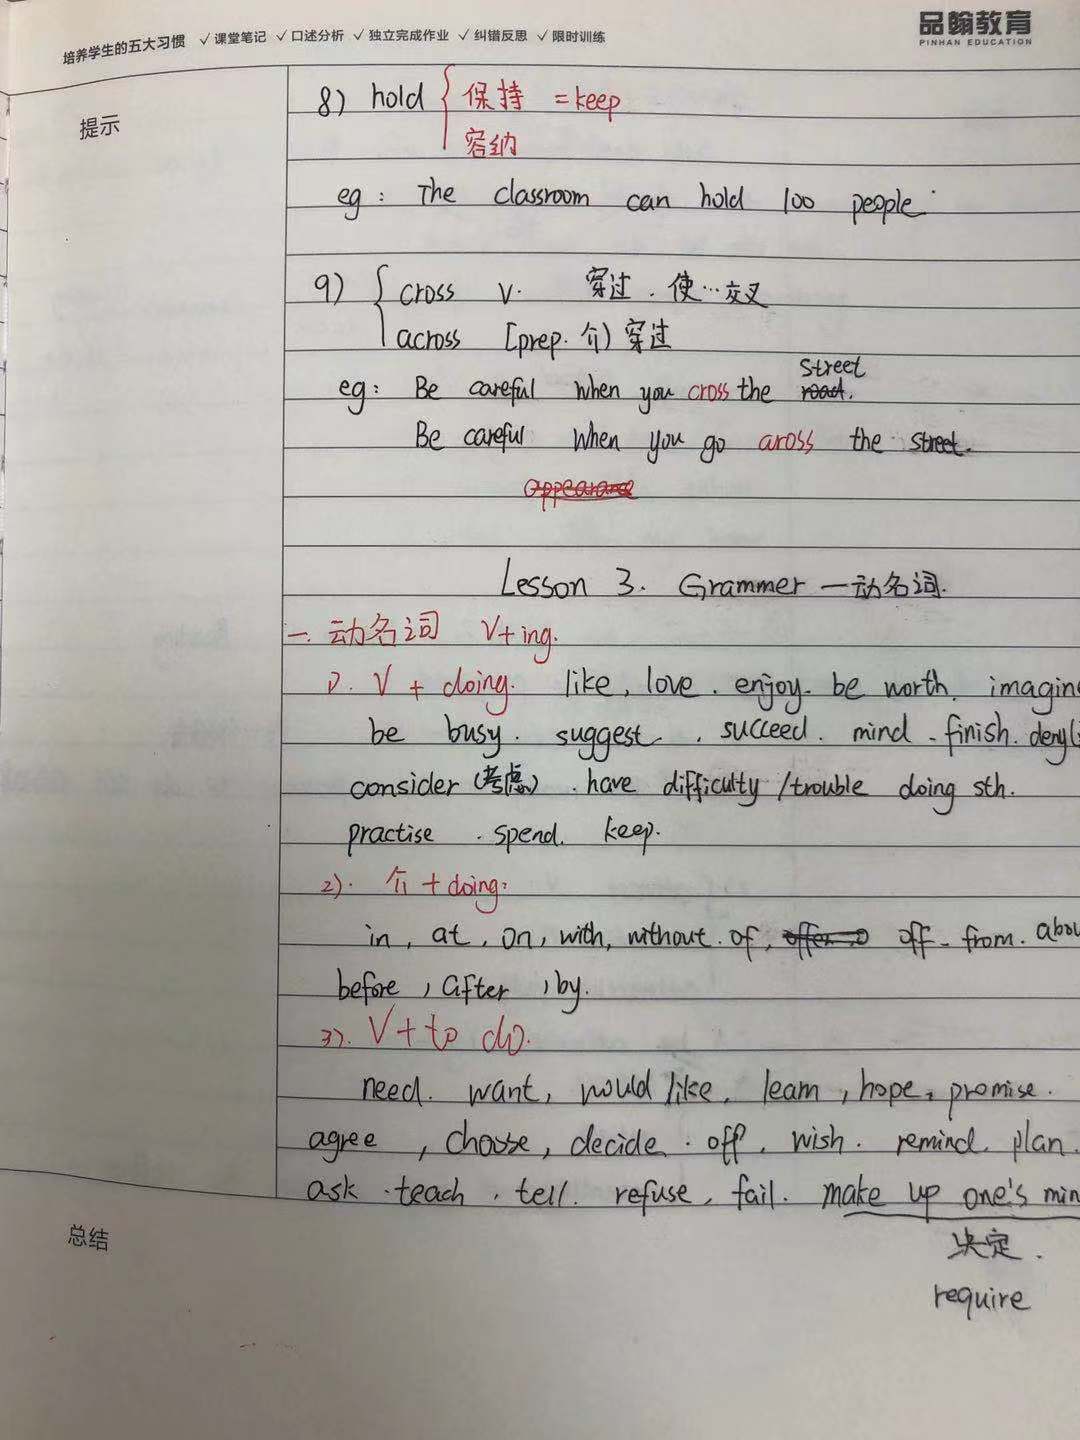 培养学生的五大习惯 ✓课堂笔记 ✓口述分析 ✓独立完成作业 ✓纠错反思 ✓限时训练
品翰教育
PINHAN EDUCATION
提示
8) hold { 保持 = keep
容纳
eg: The classroom can hold 100 people.
9) { cross v. 穿过. 使…交叉
across [prep. 介) 穿过
street
eg: Be careful when you cross the road.
Be careful when you go aross the street.
appearance
Lesson 3. Grammer — 动名词.
一. 动名词 V+ing.
1). V + doing. like, love. enjoy. be worth. imagin
be busy. suggest. succeed. mind. finish. deny(
consider (考虑). have difficulty/trouble doing sth.
practise. spend. keep.
2). 介 + doing.
in, at, on, with, without. of, off. from. abou
before, after, by.
3). V + to do.
need. want, would like, learn, hope, promise.
agree, choose, decide. off. wish. remind. plan.
ask. teach. tell. refuse, fail. make up one's min
决定.
require
总结